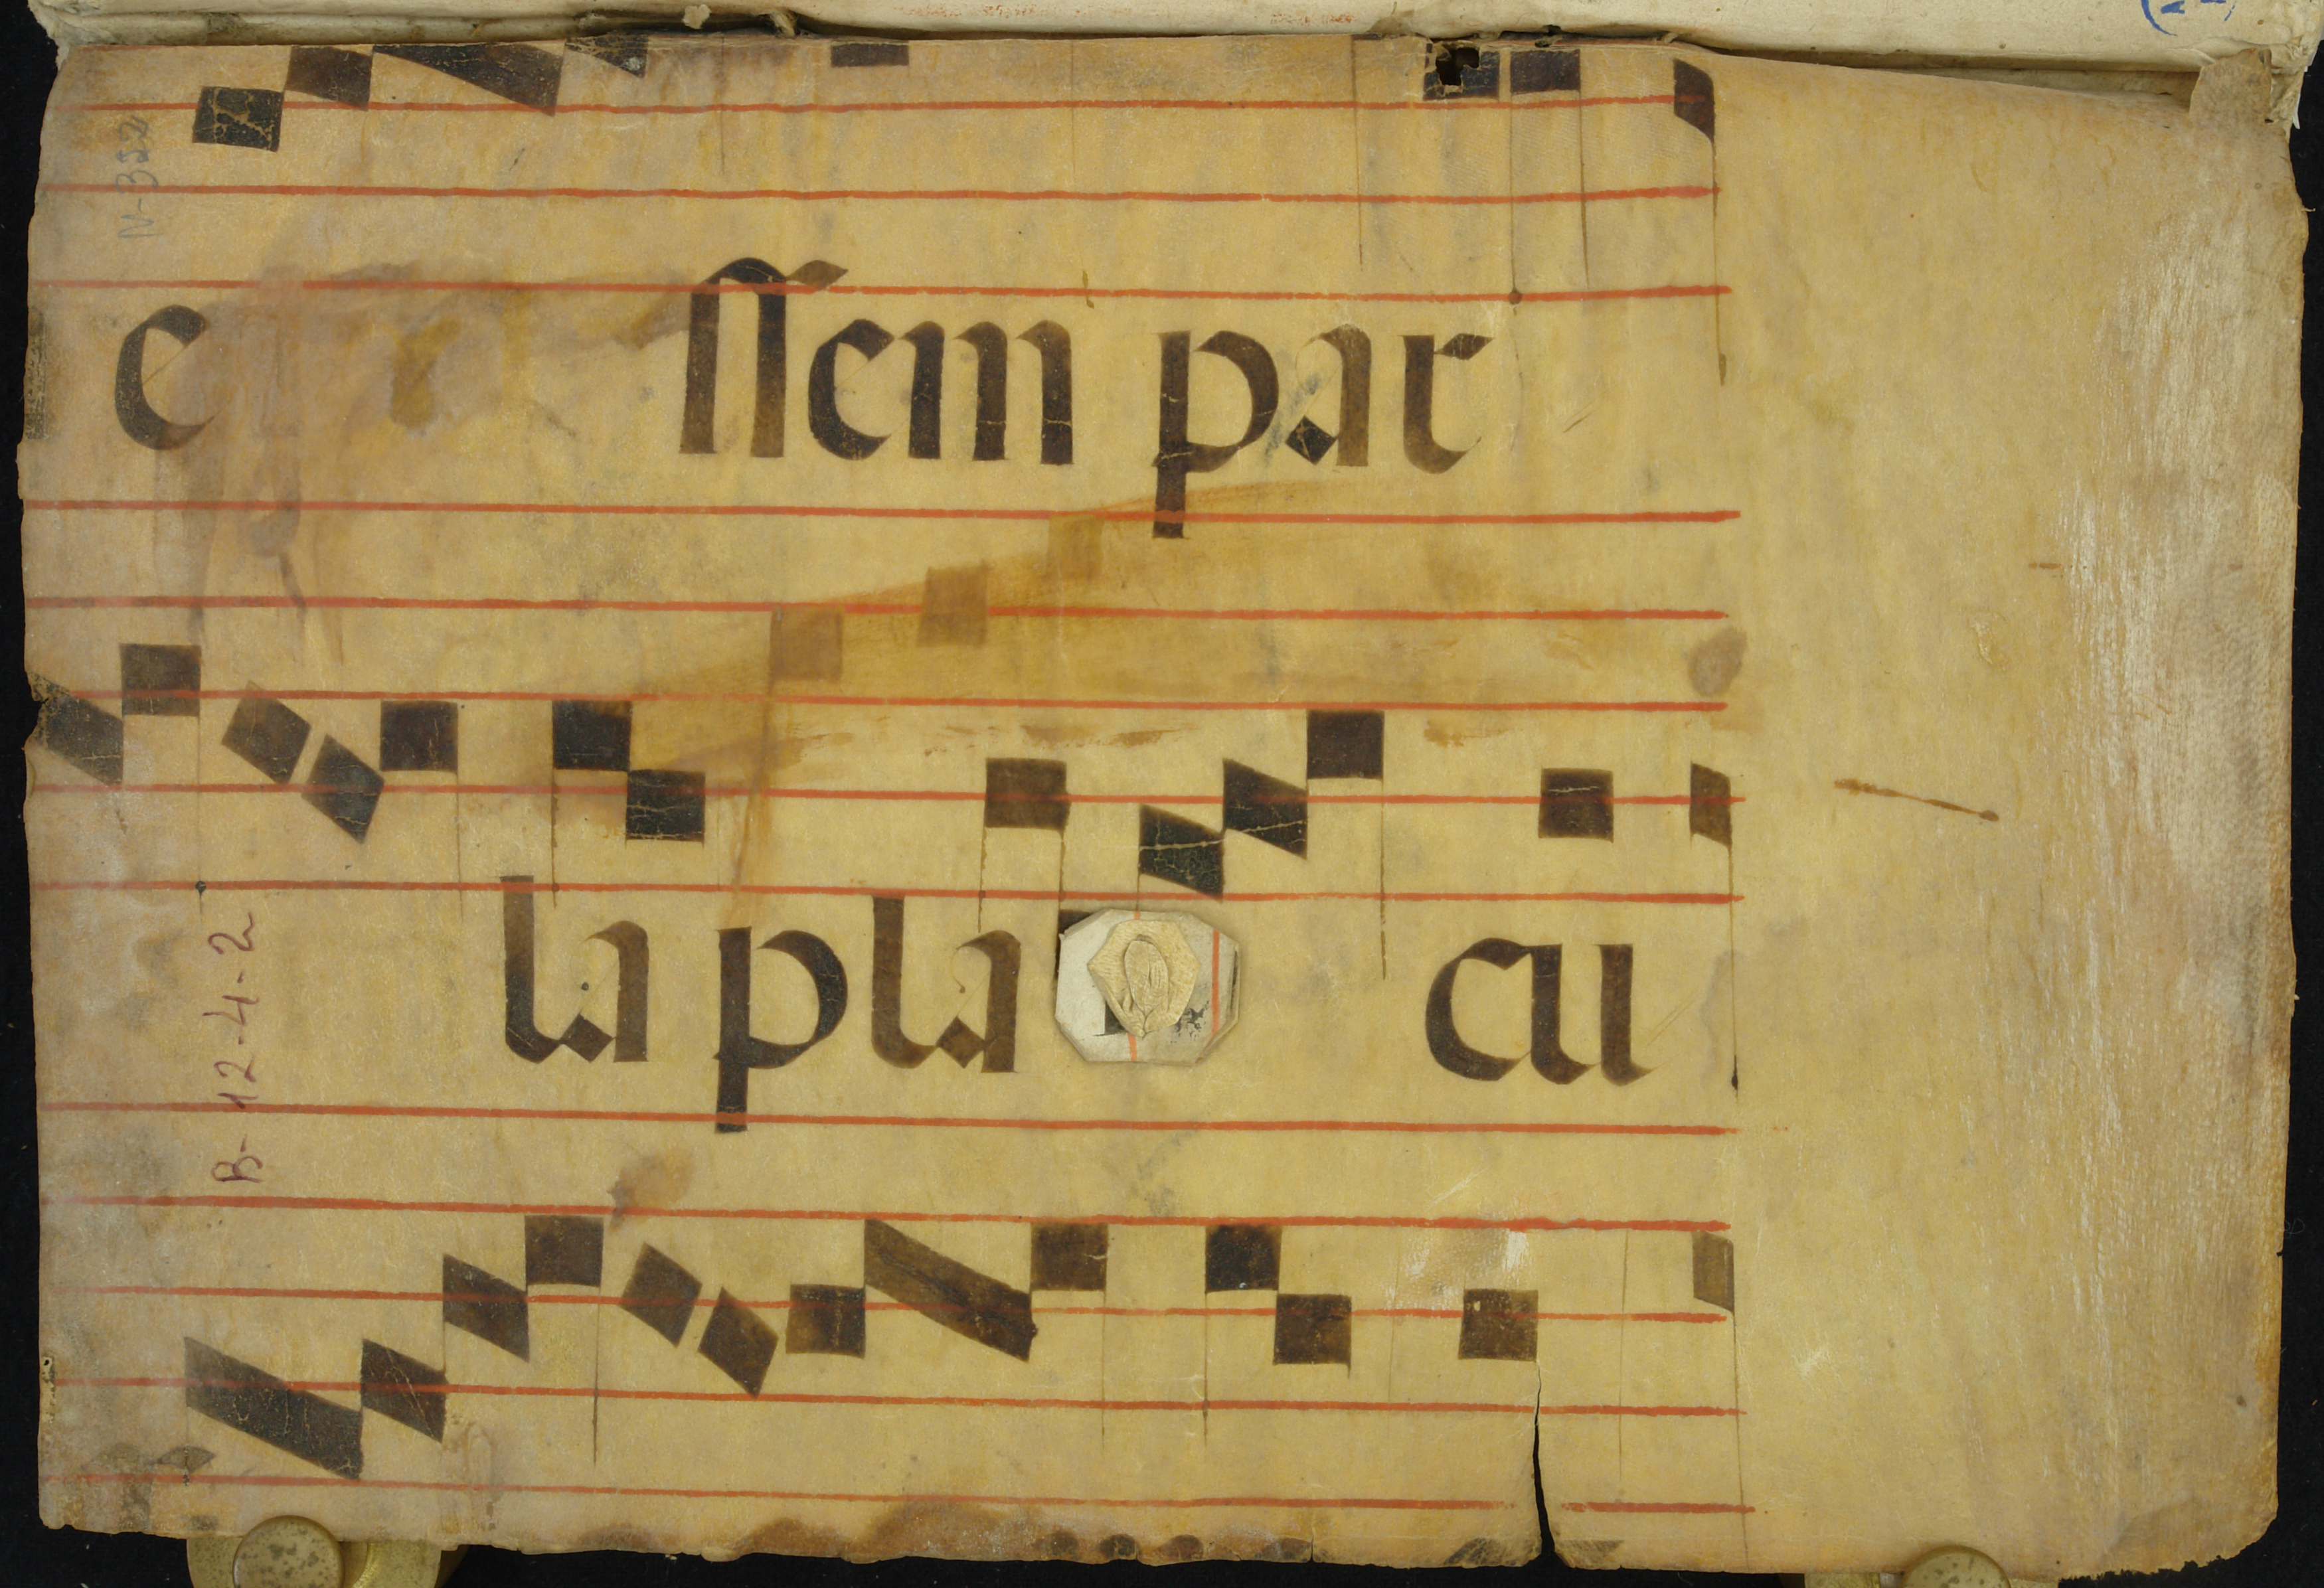 e ssem par
la pla cu
N-332
B-12-4-2